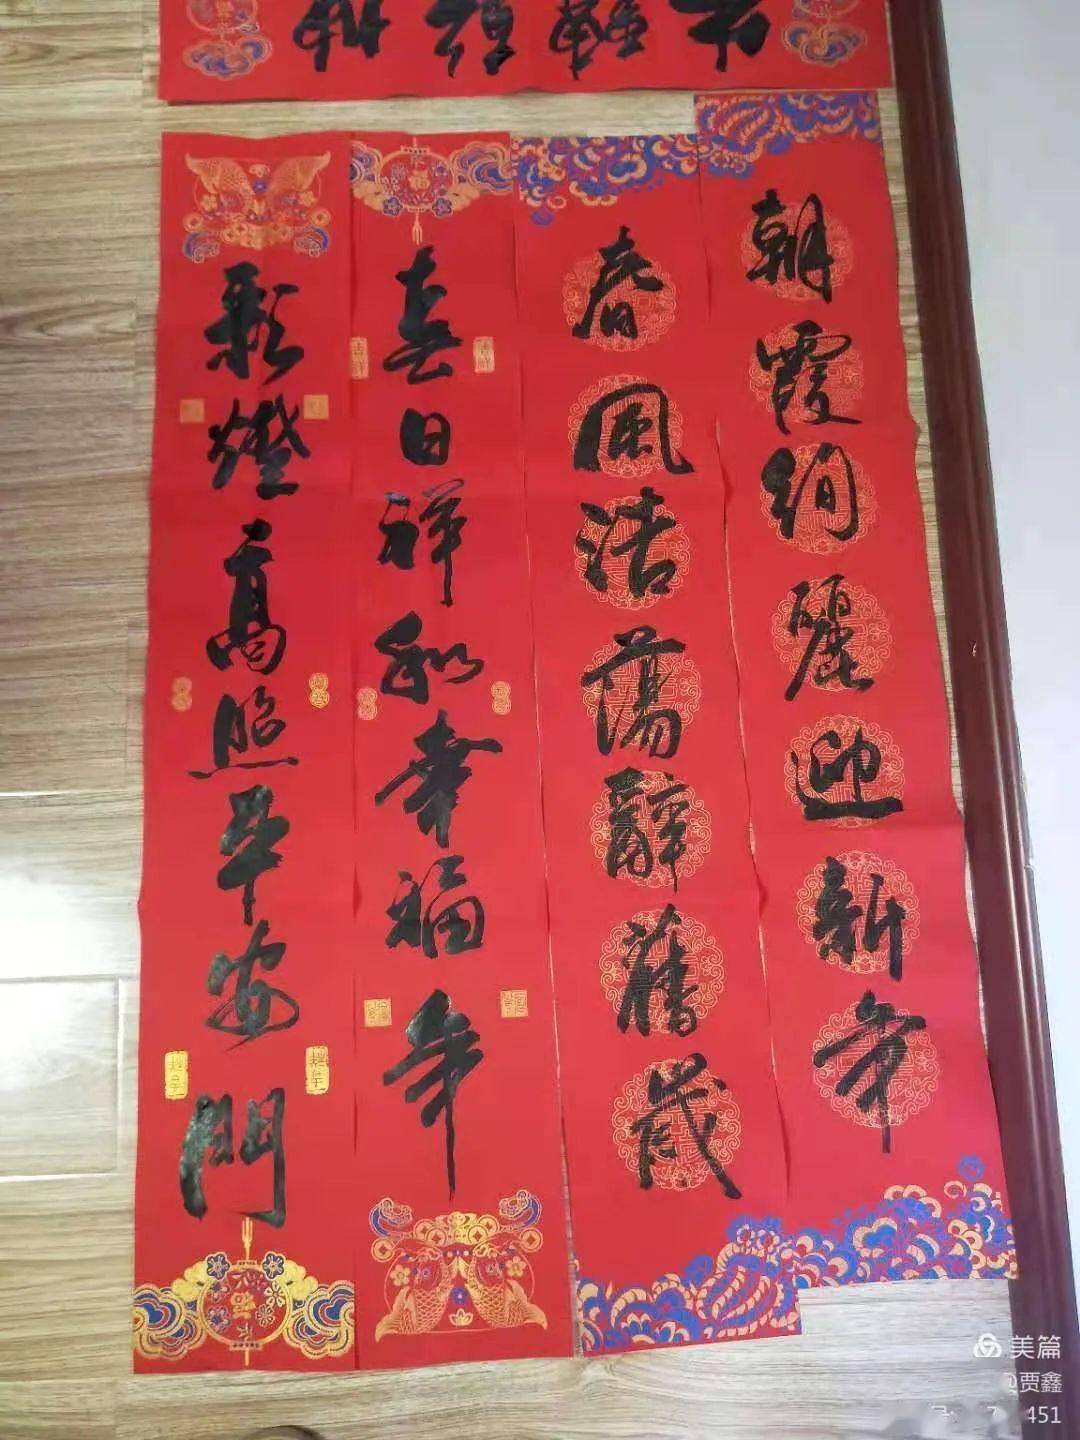 朝霞絢麗迎新年
春風浩蕩辭舊歲
喜日祥和幸福年
彩燈高照平安門
福
吉祥
吉祥
美篇
@贾鑫
451